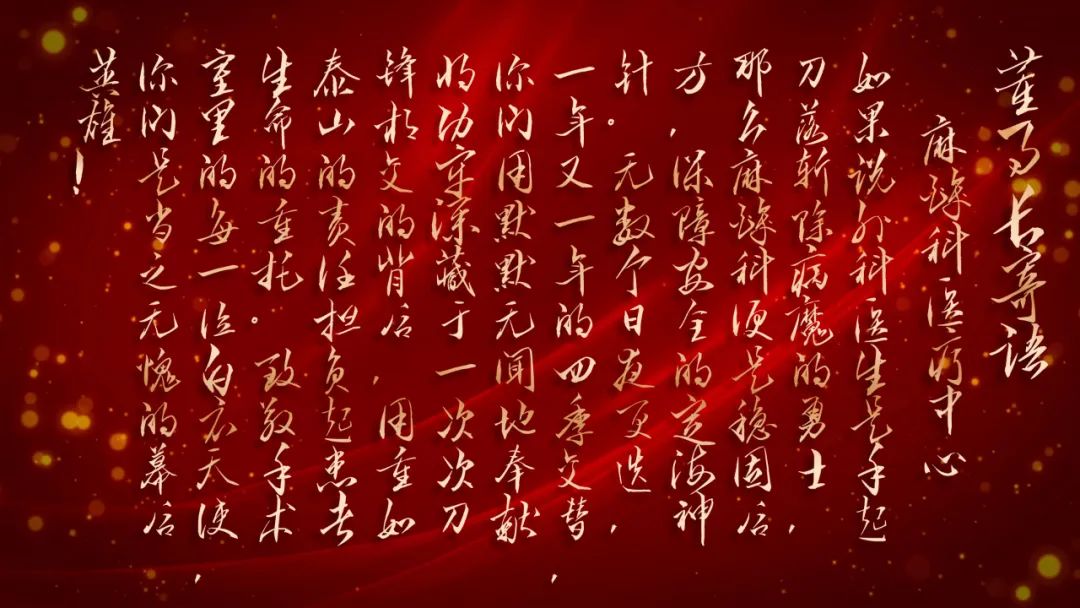 董事长寄语
麻醉科医疗中心
如果说外科医生是手起
刀落斩除病魔的勇士，
那么麻醉科便是稳固后
方，保障安全的定海神
针。无数个日夜更迭，
一年又一年的四季交替，
你们用默默无闻地奉献
将功守深藏于一次次刀
锋相交的背后，用重如
泰山的责任担负起患者
生命的重托。致敬手术
室里的每一位白衣天使，
你们是当之无愧的幕后
英雄！